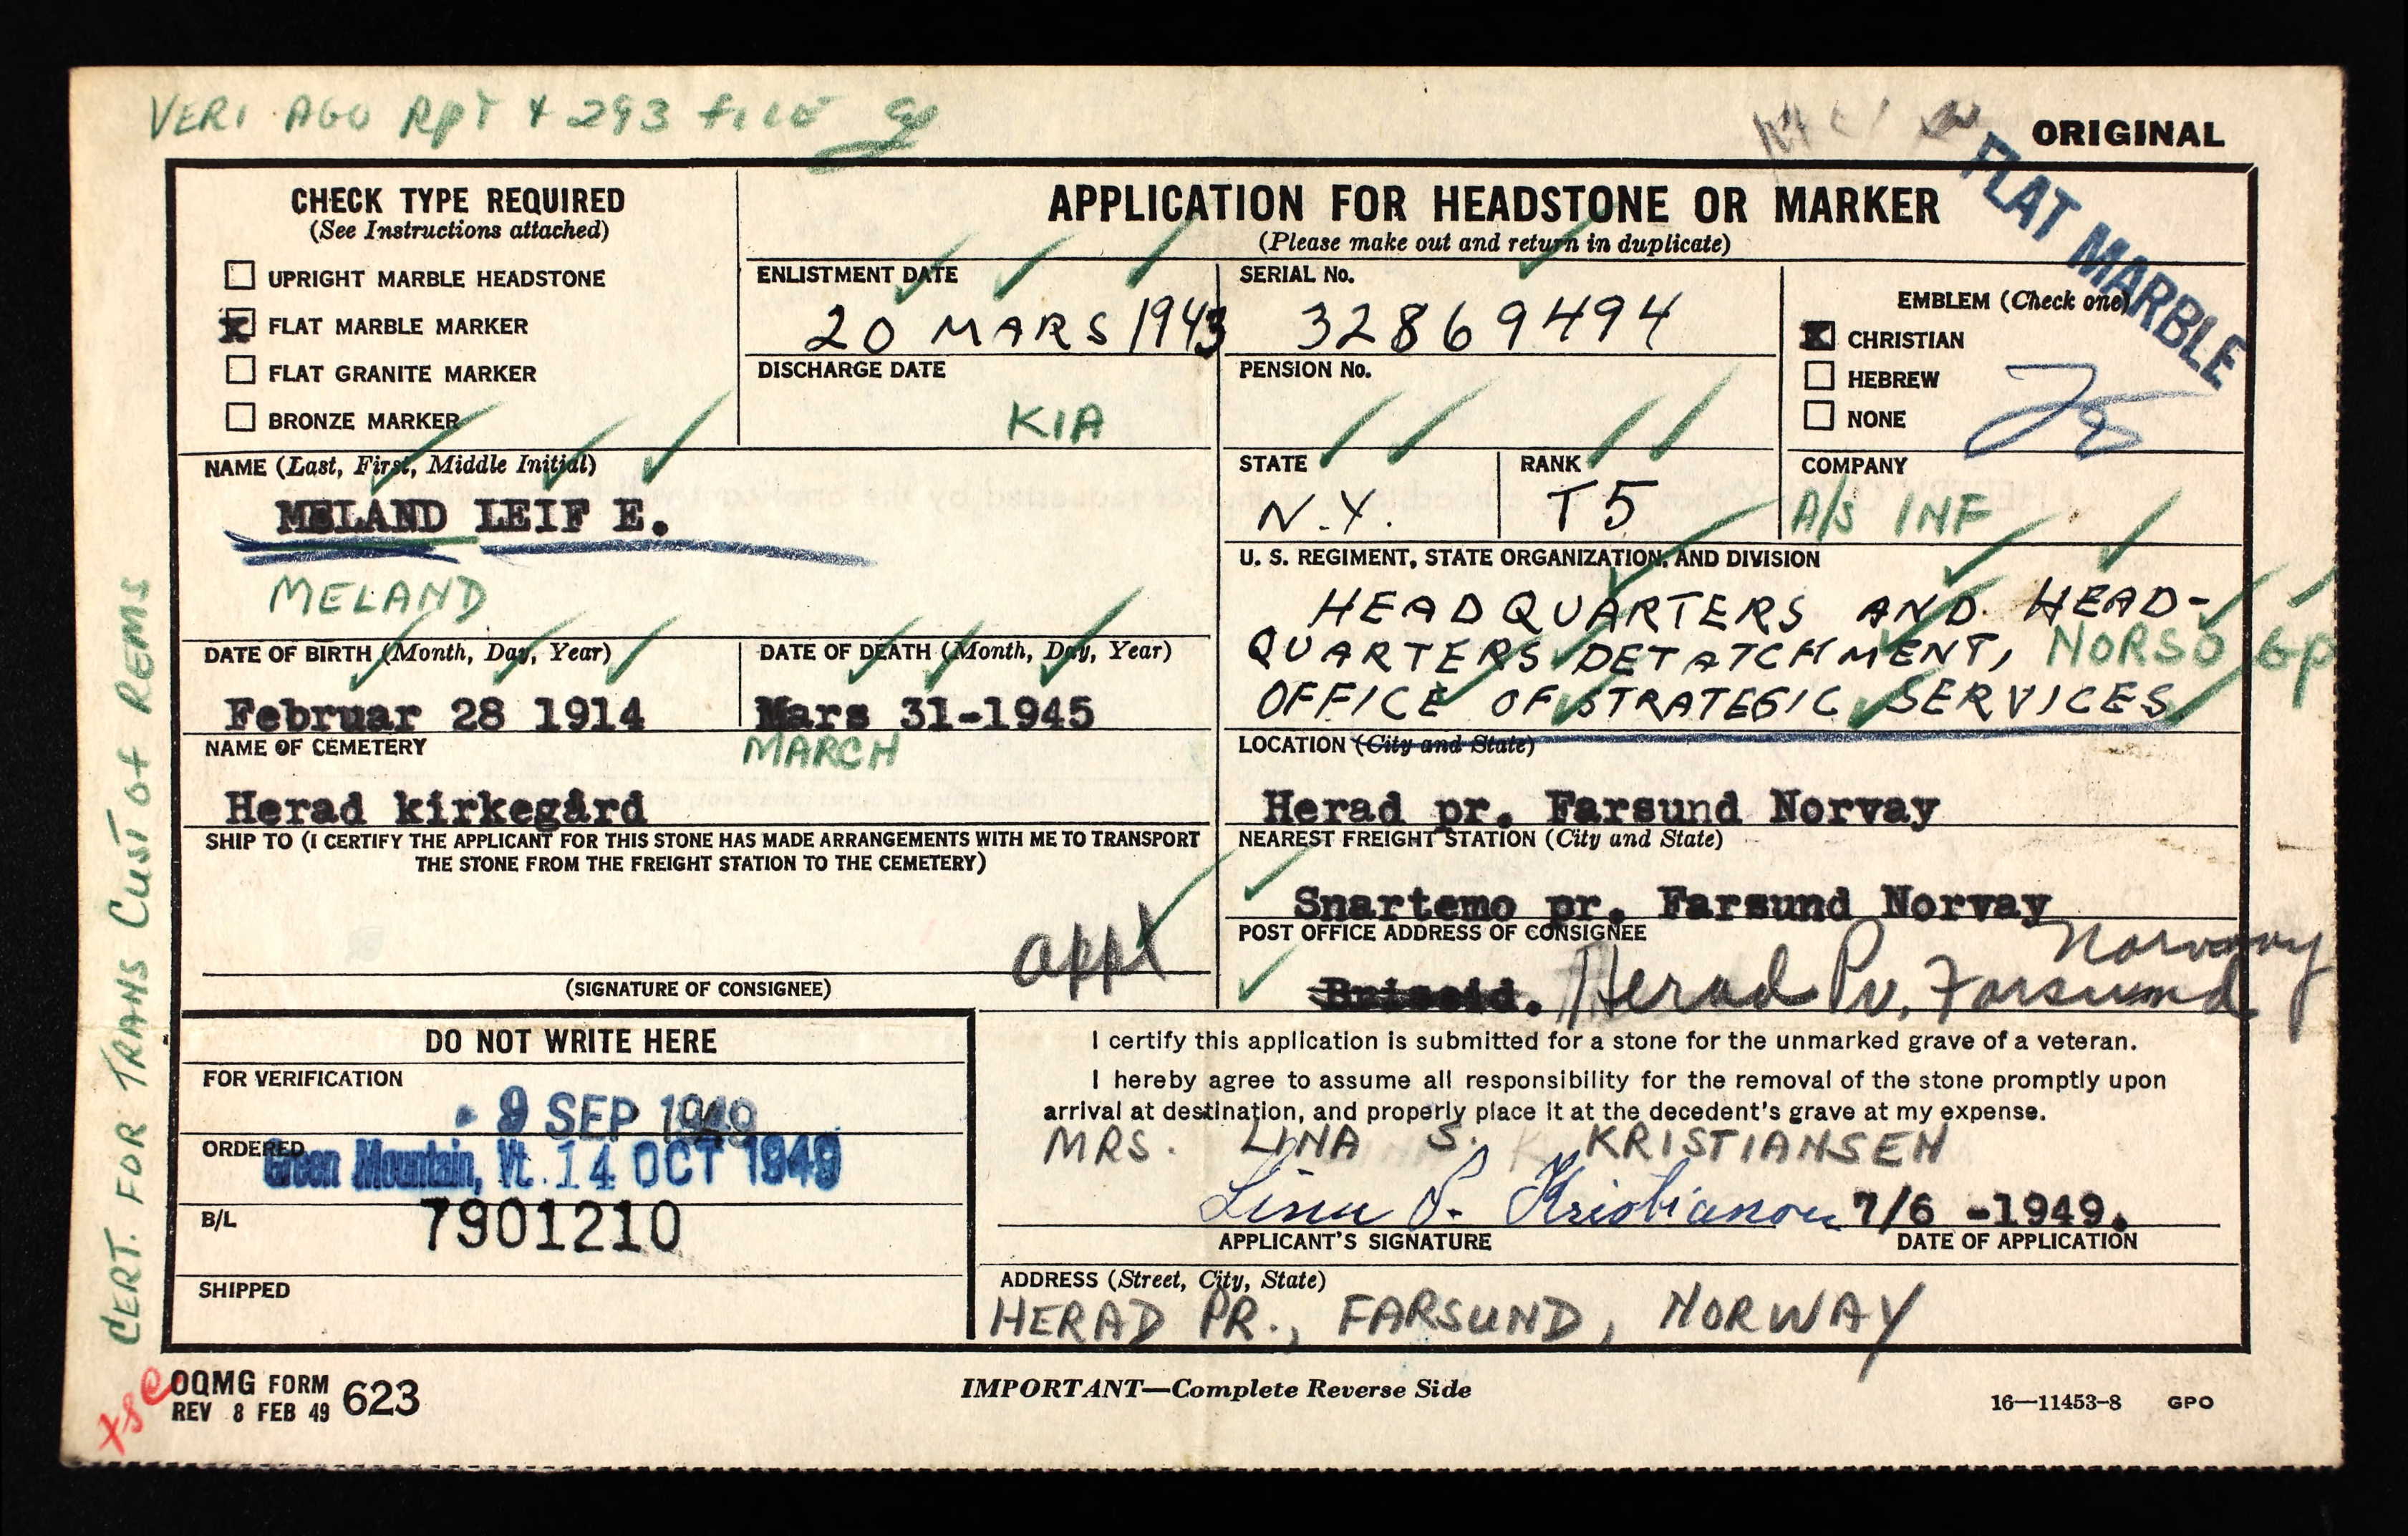 VERI AGO RPT + 293 FILE
ORIGINAL
FLAT MARBLE
CHECK TYPE REQUIRED
(See Instructions attached)
UPRIGHT MARBLE HEADSTONE
X FLAT MARBLE MARKER
FLAT GRANITE MARKER
BRONZE MARKER
APPLICATION FOR HEADSTONE OR MARKER
(Please make out and return in duplicate)
ENLISTMENT DATE
20 MARS 1943
SERIAL No.
32869494
EMBLEM (Check one)
X CHRISTIAN
HEBREW
NONE
DISCHARGE DATE
KIA
PENSION No.
NAME (Last, First, Middle Initial)
MELAND LEIF E.
MELAND
STATE
N.Y.
RANK
T5
COMPANY
A/S INF
U. S. REGIMENT, STATE ORGANIZATION, AND DIVISION
HEADQUARTERS AND HEAD-
QUARTERS DETATCHMENT, NORSO GP
OFFICE OF STRATEGIC SERVICES
DATE OF BIRTH (Month, Day, Year)
Februar 28 1914
DATE OF DEATH (Month, Day, Year)
Mars 31-1945
MARCH
NAME OF CEMETERY
Herad kirkegård
LOCATION (City and State)
Herad pr. Farsund Norvay
SHIP TO (I CERTIFY THE APPLICANT FOR THIS STONE HAS MADE ARRANGEMENTS WITH ME TO TRANSPORT
THE STONE FROM THE FREIGHT STATION TO THE CEMETERY)
appl
(SIGNATURE OF CONSIGNEE)
NEAREST FREIGHT STATION (City and State)
Snartemo pr. Farsund Norvay
POST OFFICE ADDRESS OF CONSIGNEE
Herad Pr. Farsund
Norway
DO NOT WRITE HERE
FOR VERIFICATION
- 9 SEP 1949
ORDERED
Green Mountain, Vt. 14 OCT 1949
B/L
7901210
SHIPPED
I certify this application is submitted for a stone for the unmarked grave of a veteran.
I hereby agree to assume all responsibility for the removal of the stone promptly upon
arrival at destination, and properly place it at the decedent's grave at my expense.
MRS. LINA S. KRISTIANSEN
Lina S. Kristiansen 7/6 -1949.
APPLICANT'S SIGNATURE
DATE OF APPLICATION
ADDRESS (Street, City, State)
HERAD PR., FARSUND, NORWAY
CERT. FOR TRANS CUST OF REMS
OQMG FORM 623
REV 8 FEB 49
IMPORTANT—Complete Reverse Side
16—11453-8 GPO